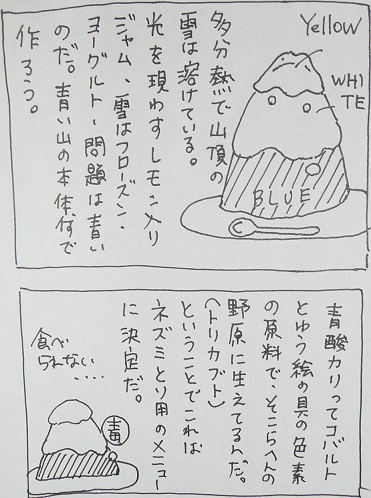 Yellow
WHI
TE
BLUE
多分熱で山頂の
雪は溶けている。
光を現わすレモン入り
ジャム、雪はフローズン・
ヨーグルト、問題は青い
のだ。青い山の本体何で
作ろう。
青酸カリってコバルト
とゆう絵の具の色素
の原料で、そこらへんの
野原に生えてるんだ。
(トリカブト)
ということでこれは
ネズミとり用のメニュー
に決定だ。
食べ
られない
....
毒